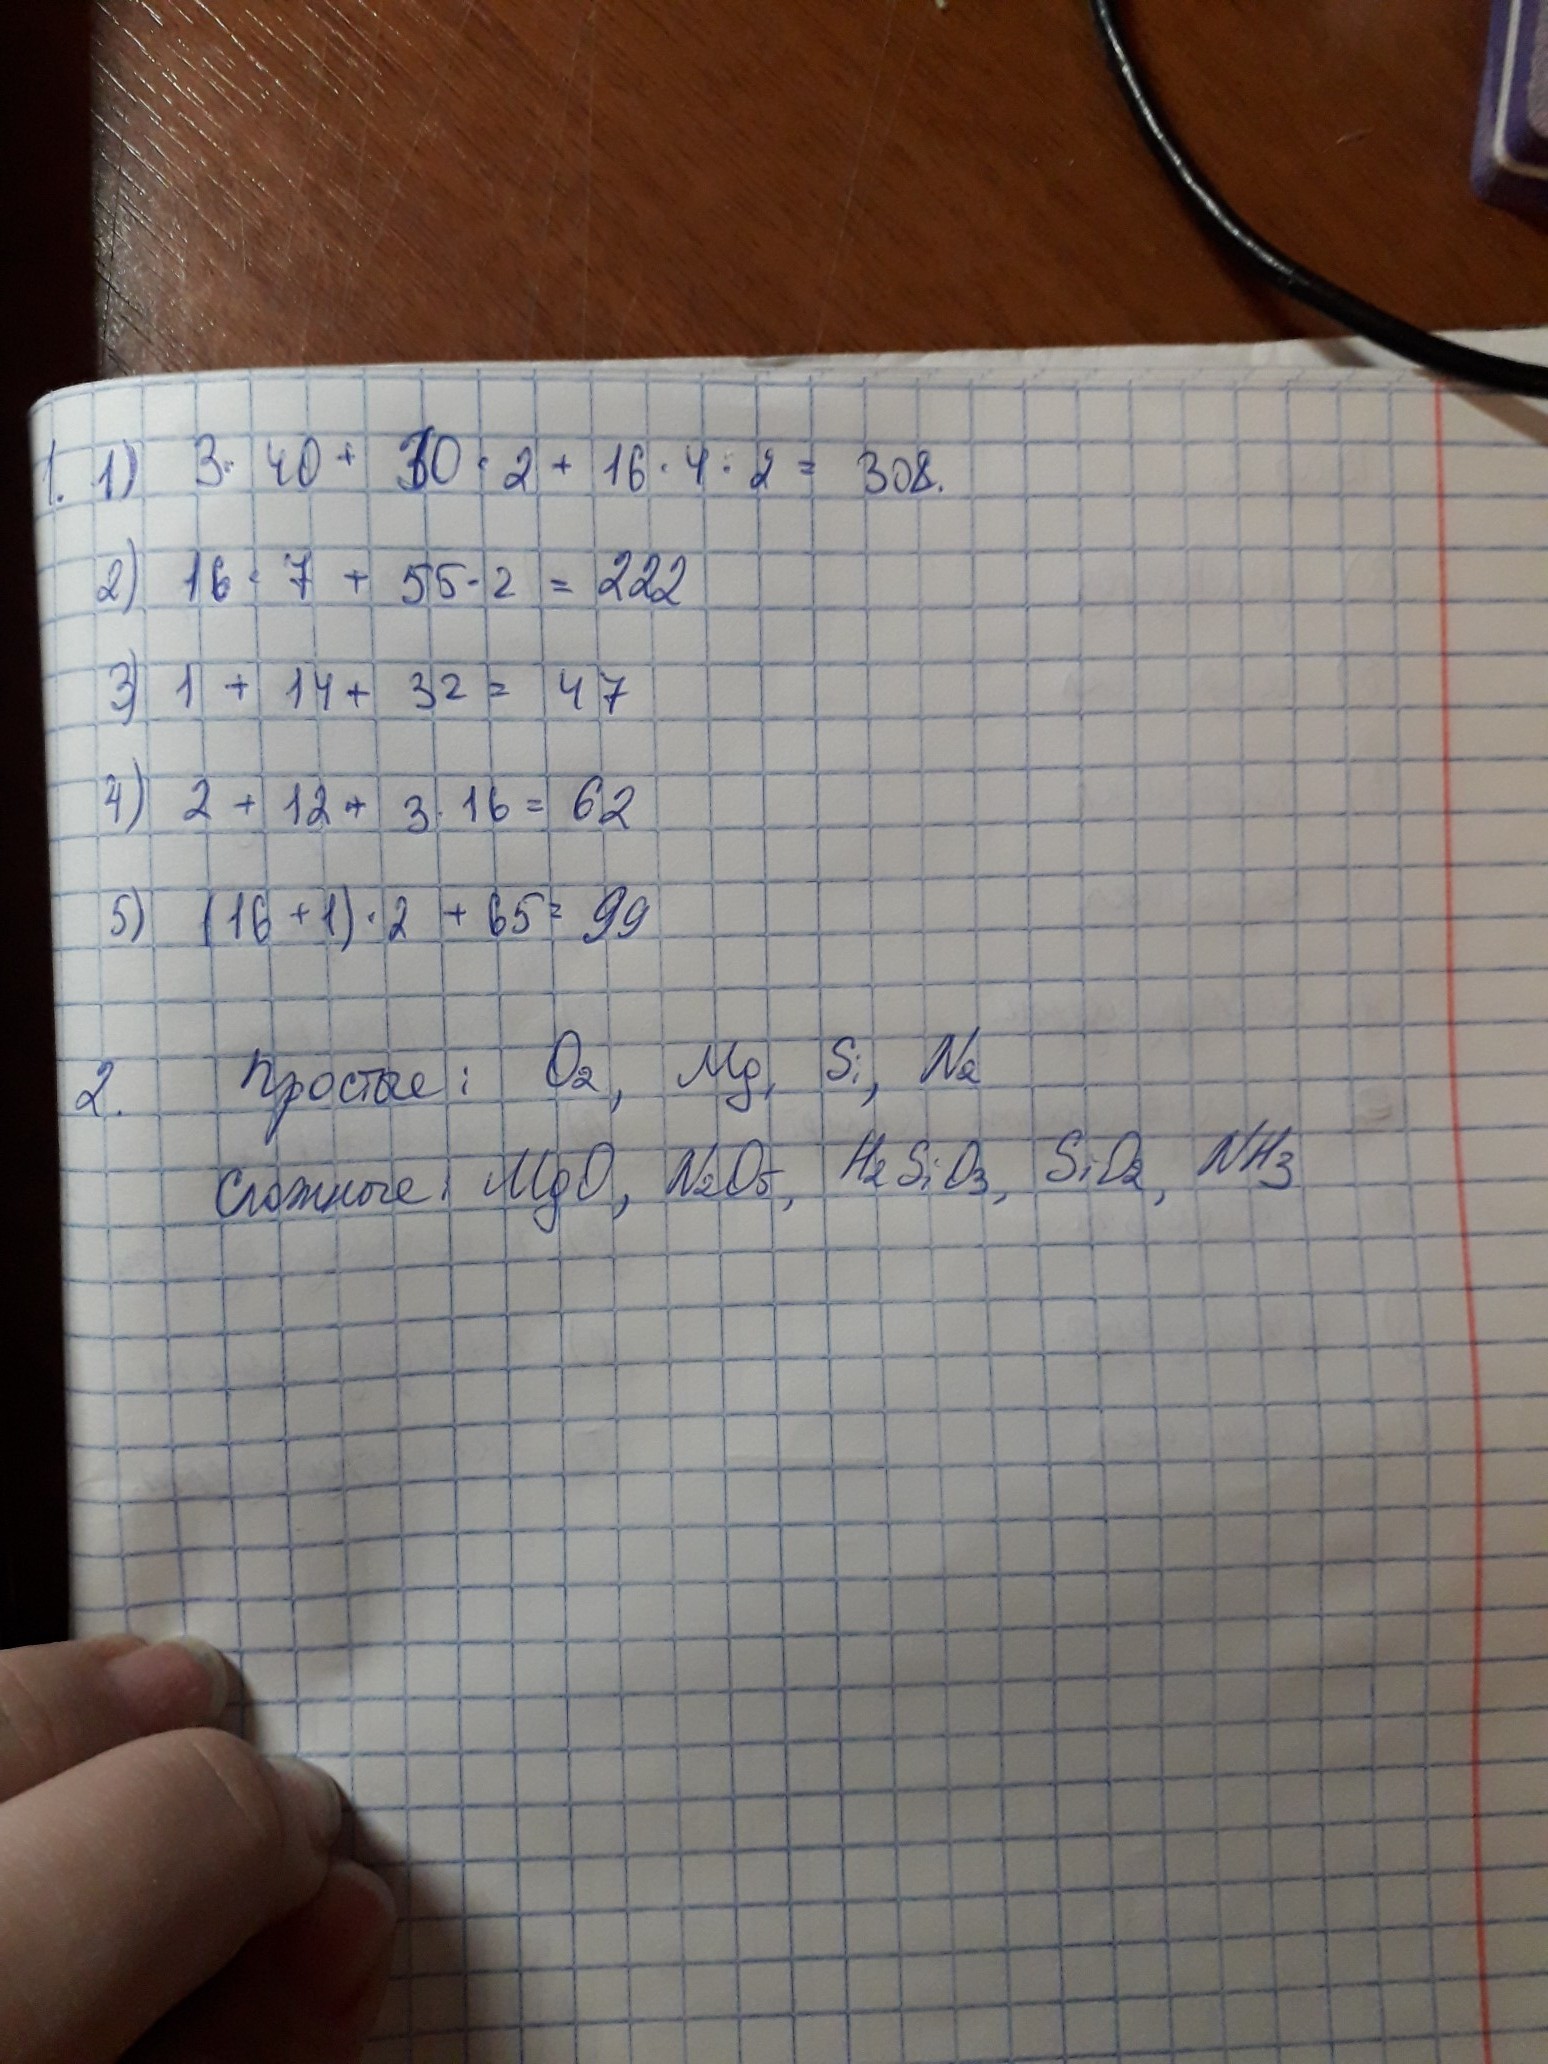 1. 1) 3· 40 + 30 · 2 + 16 · 4 · 2 = 308.
2) 16 · 7 + 55 · 2 = 222
3) 1 + 14 + 32 = 47
4) 2 + 12 + 3 · 16 = 62
5) (16 + 1) · 2 + 65 = 99
2. Простые: O₂, Mg, Si, N₂
Сложные: MgO, N₂O₅, H₂SiO₃, SiO₂, NH₃